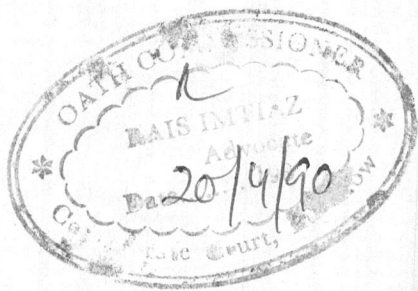 OATH COMMISSIONER
RAIS IMTIAZ
Advocate
Date 20/4/90
Court,